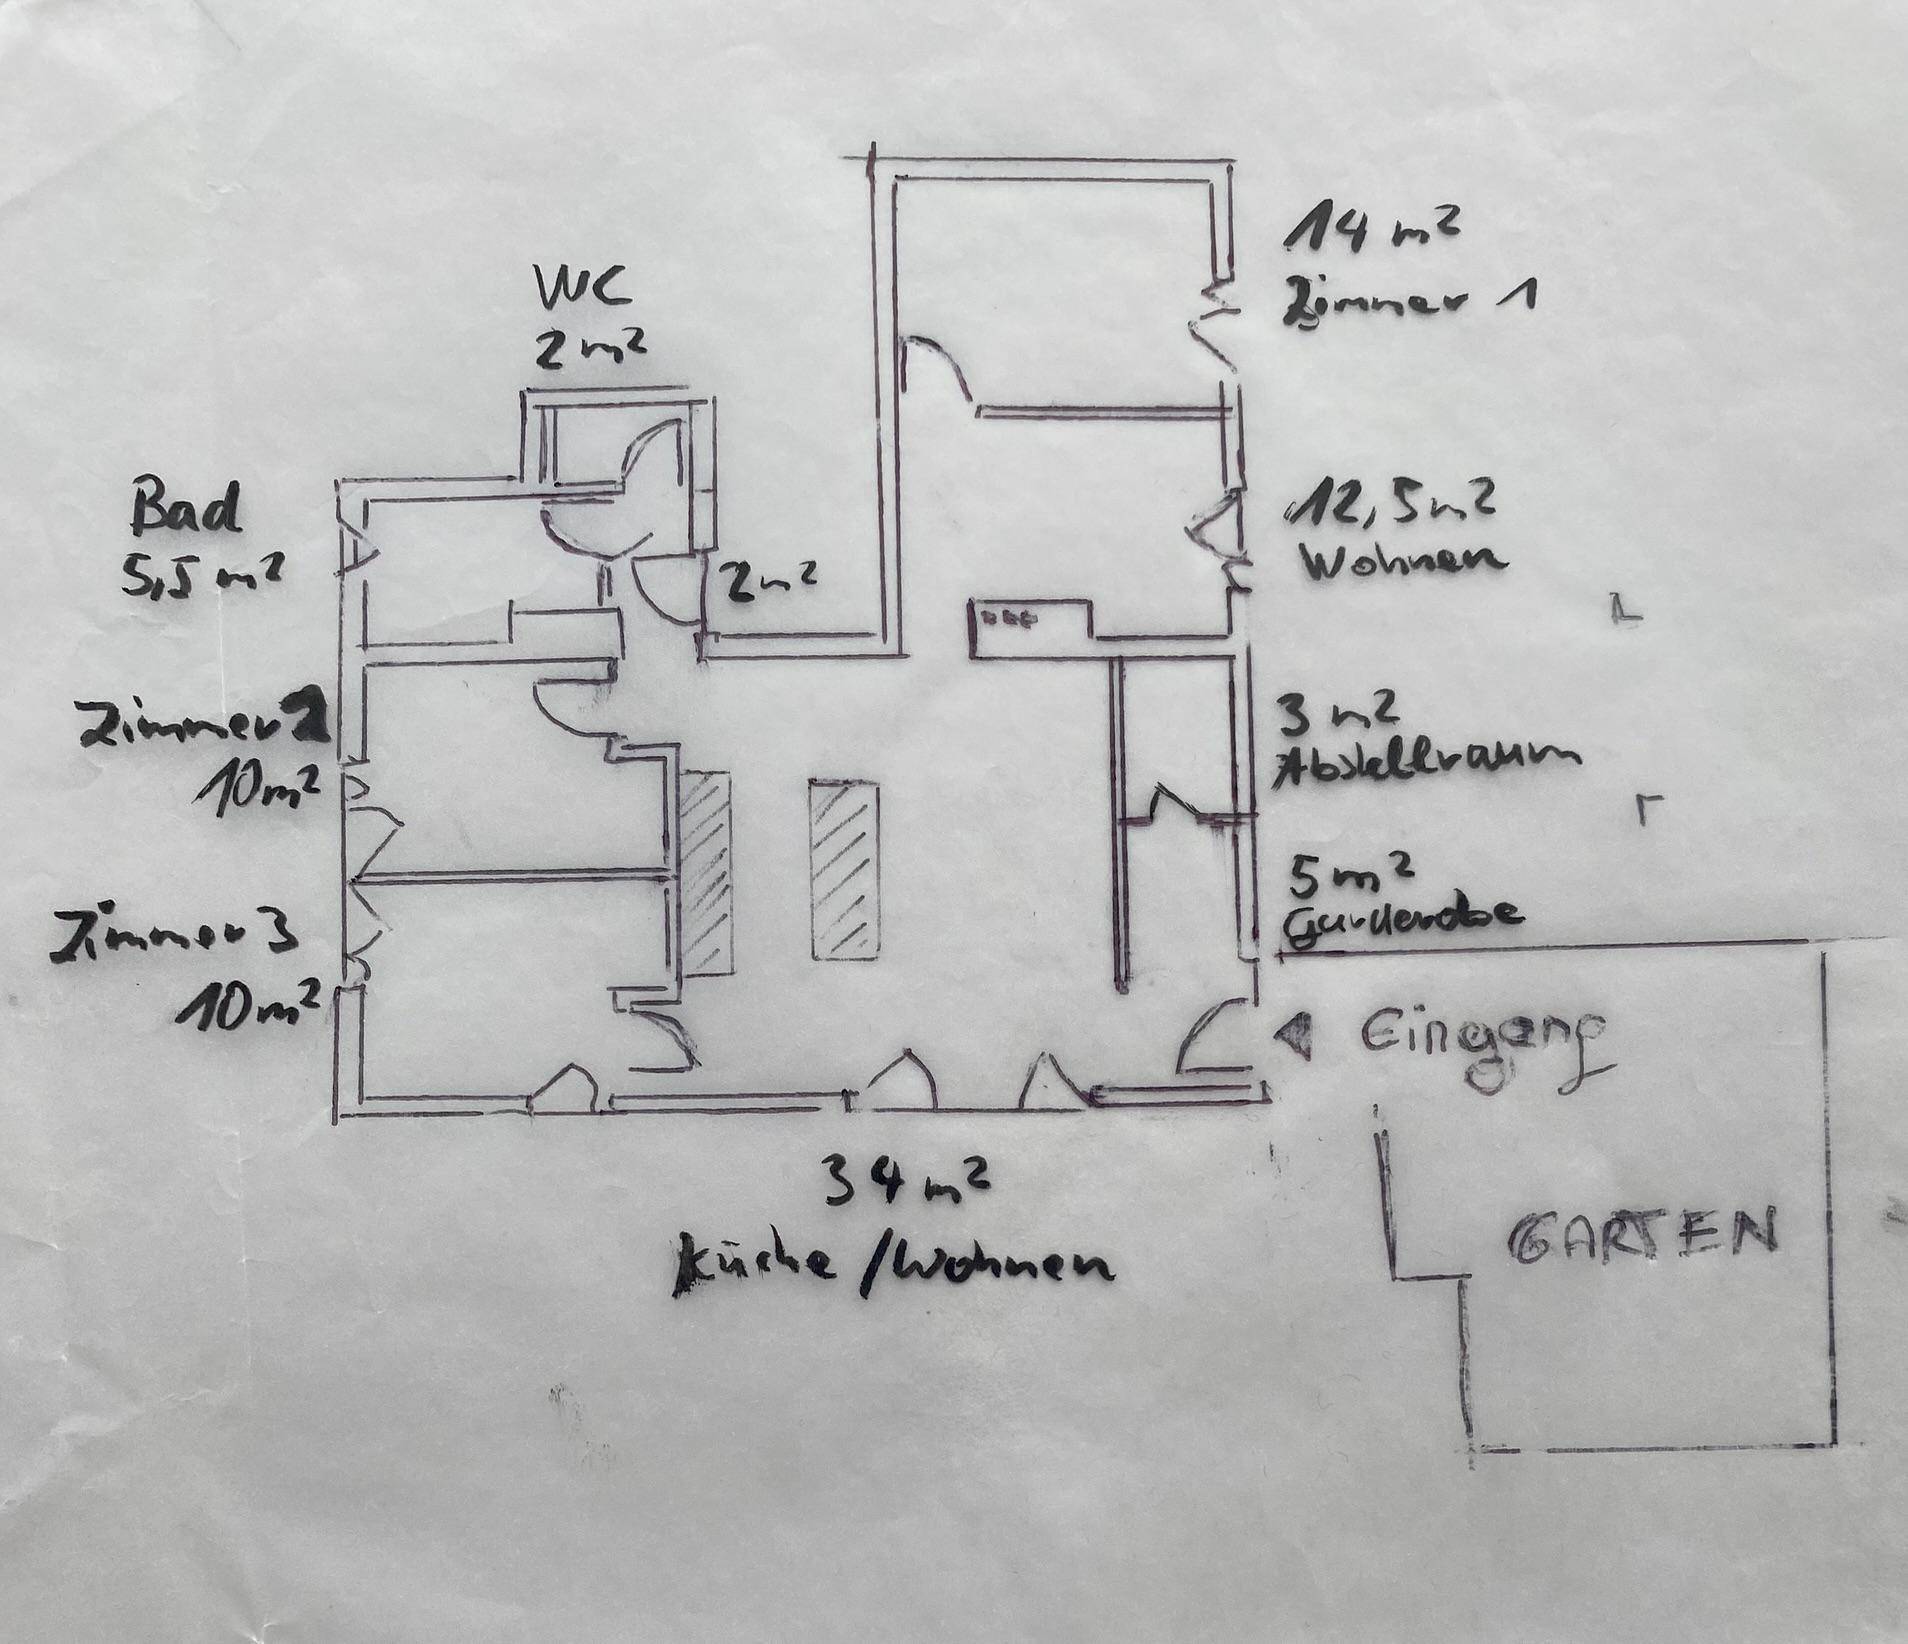 14 m²
Zimmer 1
WC
2 m²
Bad
5,5 m²
12,5 m²
Wohnen
2 m²
Zimmer 2
10 m²
3 m²
Abstellraum
5 m²
Garderobe
Zimmer 3
10 m²
Eingang
34 m²
Küche/Wohnen
GARTEN